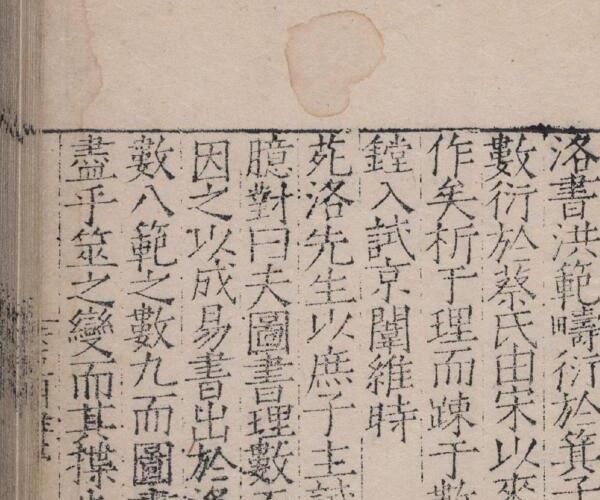 洛書洪範疇衍於箕子
數衍於蔡氏由宋以來
作矣析于理而踈于數
鏜入試京闈維時
苑洛先生以庶子主試
臆對曰夫圖書理數
因之以成易書出於洛
數八範之數九而圖書
盡乎筮之變而其揲